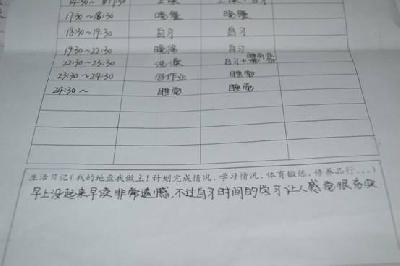 17:30~18:30 晚餐 晚餐
18:30~19:30 自习 自习
19:30~22:30 晚修 自习
22:30~23:30 洗澡 自习+
23:30~24:30 写作业 睡觉
24:30~ 睡觉 睡觉
生活日记(我的地盘我做主!计划完成情况、学习情况、体育锻炼、修养品行...)
早上没起来早读非常遗憾,不过自习时间的学习让人感觉很充实